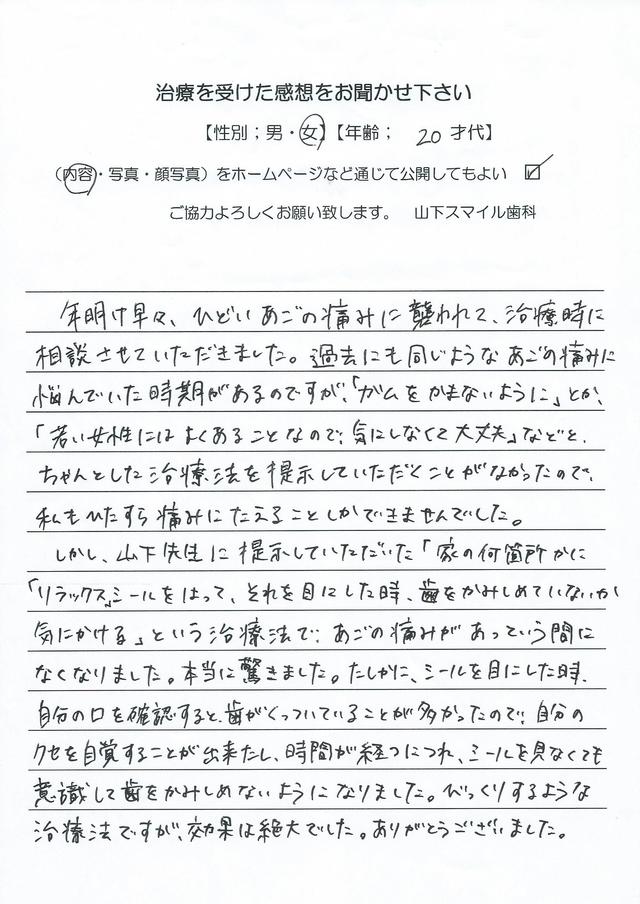 治療を受けた感想をお聞かせ下さい
【性別；男・女】【年齢； 20 才代】
（内容・写真・顔写真）をホームページなど通じて公開してもよい ☑
ご協力よろしくお願い致します。 山下スマイル歯科
年明け早々、ひどいあごの痛みに襲われて、治療時に
相談させていただきました。過去にも同じようなあごの痛みに
悩んでいた時期があるのですが、「ガムをかまないように」とか、
「若い女性にはよくあることなので、気にしなくて大丈夫」などと、
ちゃんとした治療法を提示していただくことがなかったので、
私もひたすら痛みにたえることしかできませんでした。
しかし、山下先生に提示していただいた「家の何箇所かに
「リラックス」シールをはって、それを目にした時、歯をかみしめていないか
気にかける」という治療法で、あごの痛みがあっという間に
なくなりました。本当に驚きました。たしかに、シールを目にした時、
自分の口を確認すると、歯がくっついていることが多かったので、自分の
クセを自覚することが出来たし、時間が経つにつれ、シールを見なくても
意識して歯をかみしめないようになりました。びっくりするような
治療法ですが、効果は絶大でした。ありがとうございました。